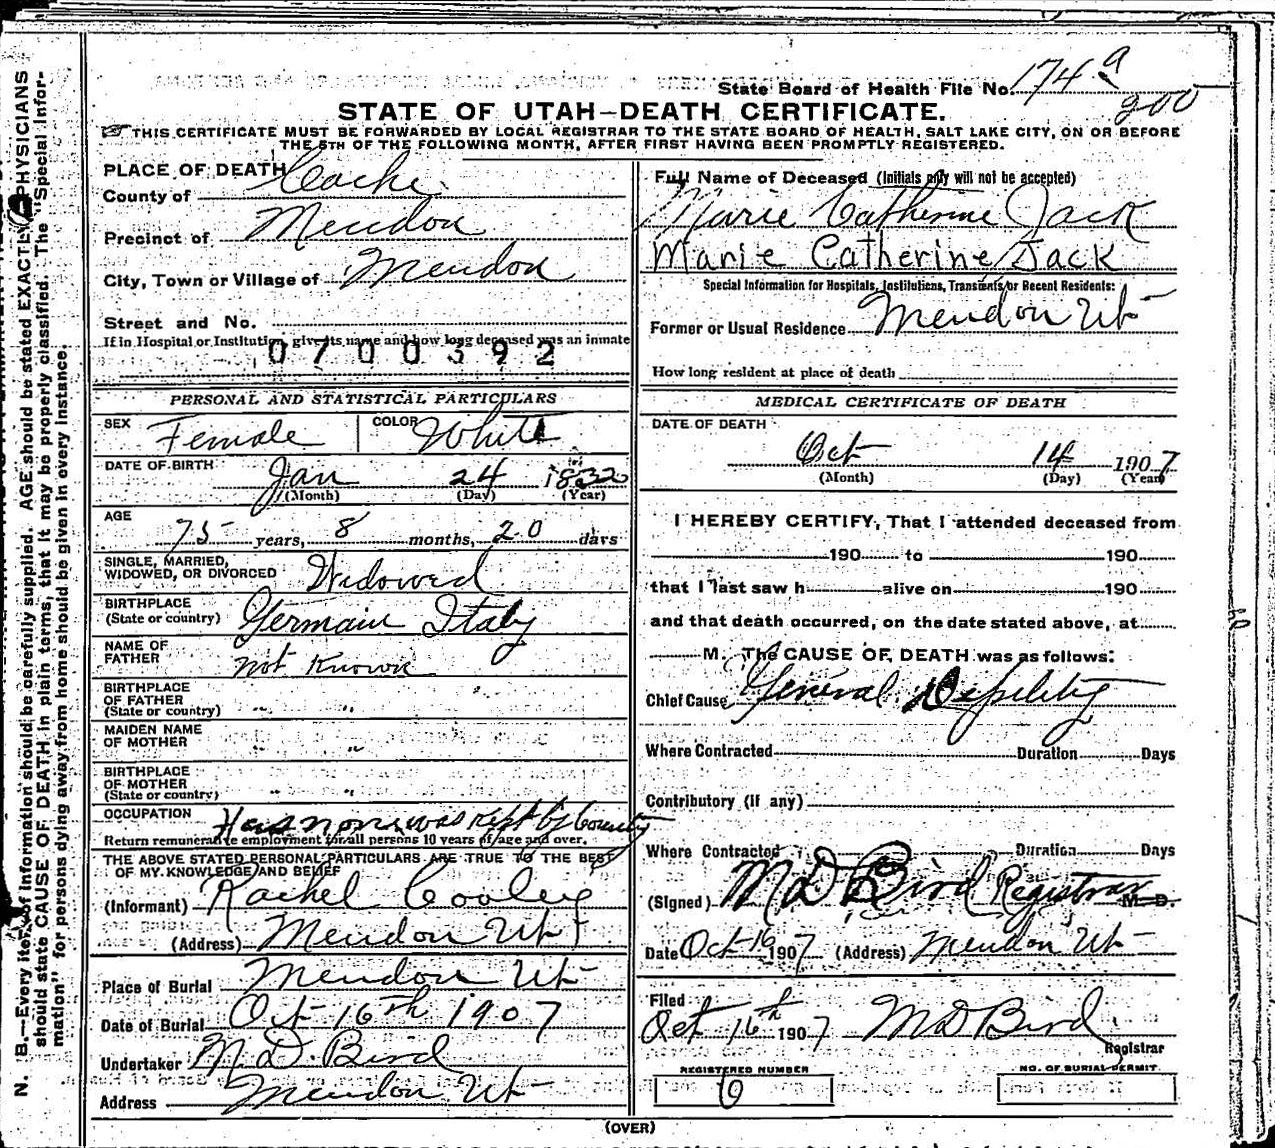 State Board of Health File No. 174 a
200
STATE OF UTAH—DEATH CERTIFICATE.
THIS CERTIFICATE MUST BE FORWARDED BY LOCAL REGISTRAR TO THE STATE BOARD OF HEALTH, SALT LAKE CITY, ON OR BEFORE
THE 5TH OF THE FOLLOWING MONTH, AFTER FIRST HAVING BEEN PROMPTLY REGISTERED.
PLACE OF DEATH
County of Cache
Precinct of Mendon
City, Town or Village of Mendon
Street and No.
If in Hospital or Institution, give its name and how long deceased was an inmate
0700392
PERSONAL AND STATISTICAL PARTICULARS
SEX Female COLOR White
DATE OF BIRTH Jan 24 1832
(Month) (Day) (Year)
AGE
75 years, 8 months, 20 days
SINGLE, MARRIED,
WIDOWED, OR DIVORCED Widowed
BIRTHPLACE
(State or country) Germain Italy
NAME OF
FATHER not Known
BIRTHPLACE
OF FATHER
(State or country) " "
MAIDEN NAME
OF MOTHER " "
BIRTHPLACE
OF MOTHER
(State or country) " "
OCCUPATION Has none was kept by County
Return remunerative employment for all persons 10 years of age and over.
THE ABOVE STATED PERSONAL PARTICULARS ARE TRUE TO THE BEST
OF MY KNOWLEDGE AND BELIEF
(Informant) Rachel Cooley
(Address) Mendon Ut
Place of Burial Mendon Ut
Date of Burial Oct 16th 1907
Undertaker M. D. Bird
Address Mendon Ut
Full Name of Deceased (Initials only will not be accepted)
Marie Catherine Jack
Marie Catherine Jack
Special Information for Hospitals, Institutions, Transients or Recent Residents:
Former or Usual Residence Mendon Ut
How long resident at place of death
MEDICAL CERTIFICATE OF DEATH
DATE OF DEATH
Oct 14 1907
(Month) (Day) (Year)
I HEREBY CERTIFY, That I attended deceased from
190 to 190
that I last saw h alive on 190
and that death occurred, on the date stated above, at
M. The CAUSE OF DEATH was as follows:
Chief Cause General Depility
Where Contracted Duration Days
Contributory (if any)
Where Contracted Duration Days
(Signed) M D Bird Registrar M. D.
Date Oct 16 1907 (Address) Mendon Ut
Filed
Oct 16th 1907 M D Bird
Registrar
REGISTERED NUMBER NO. OF BURIAL PERMIT
6
(OVER)
N. B.—Every item of information should be carefully supplied. AGE should be stated EXACTLY. PHYSICIANS
should state CAUSE OF DEATH in plain terms, that it may be properly classified. The "Special Infor-
mation" for persons dying away from home should be given in every instance.